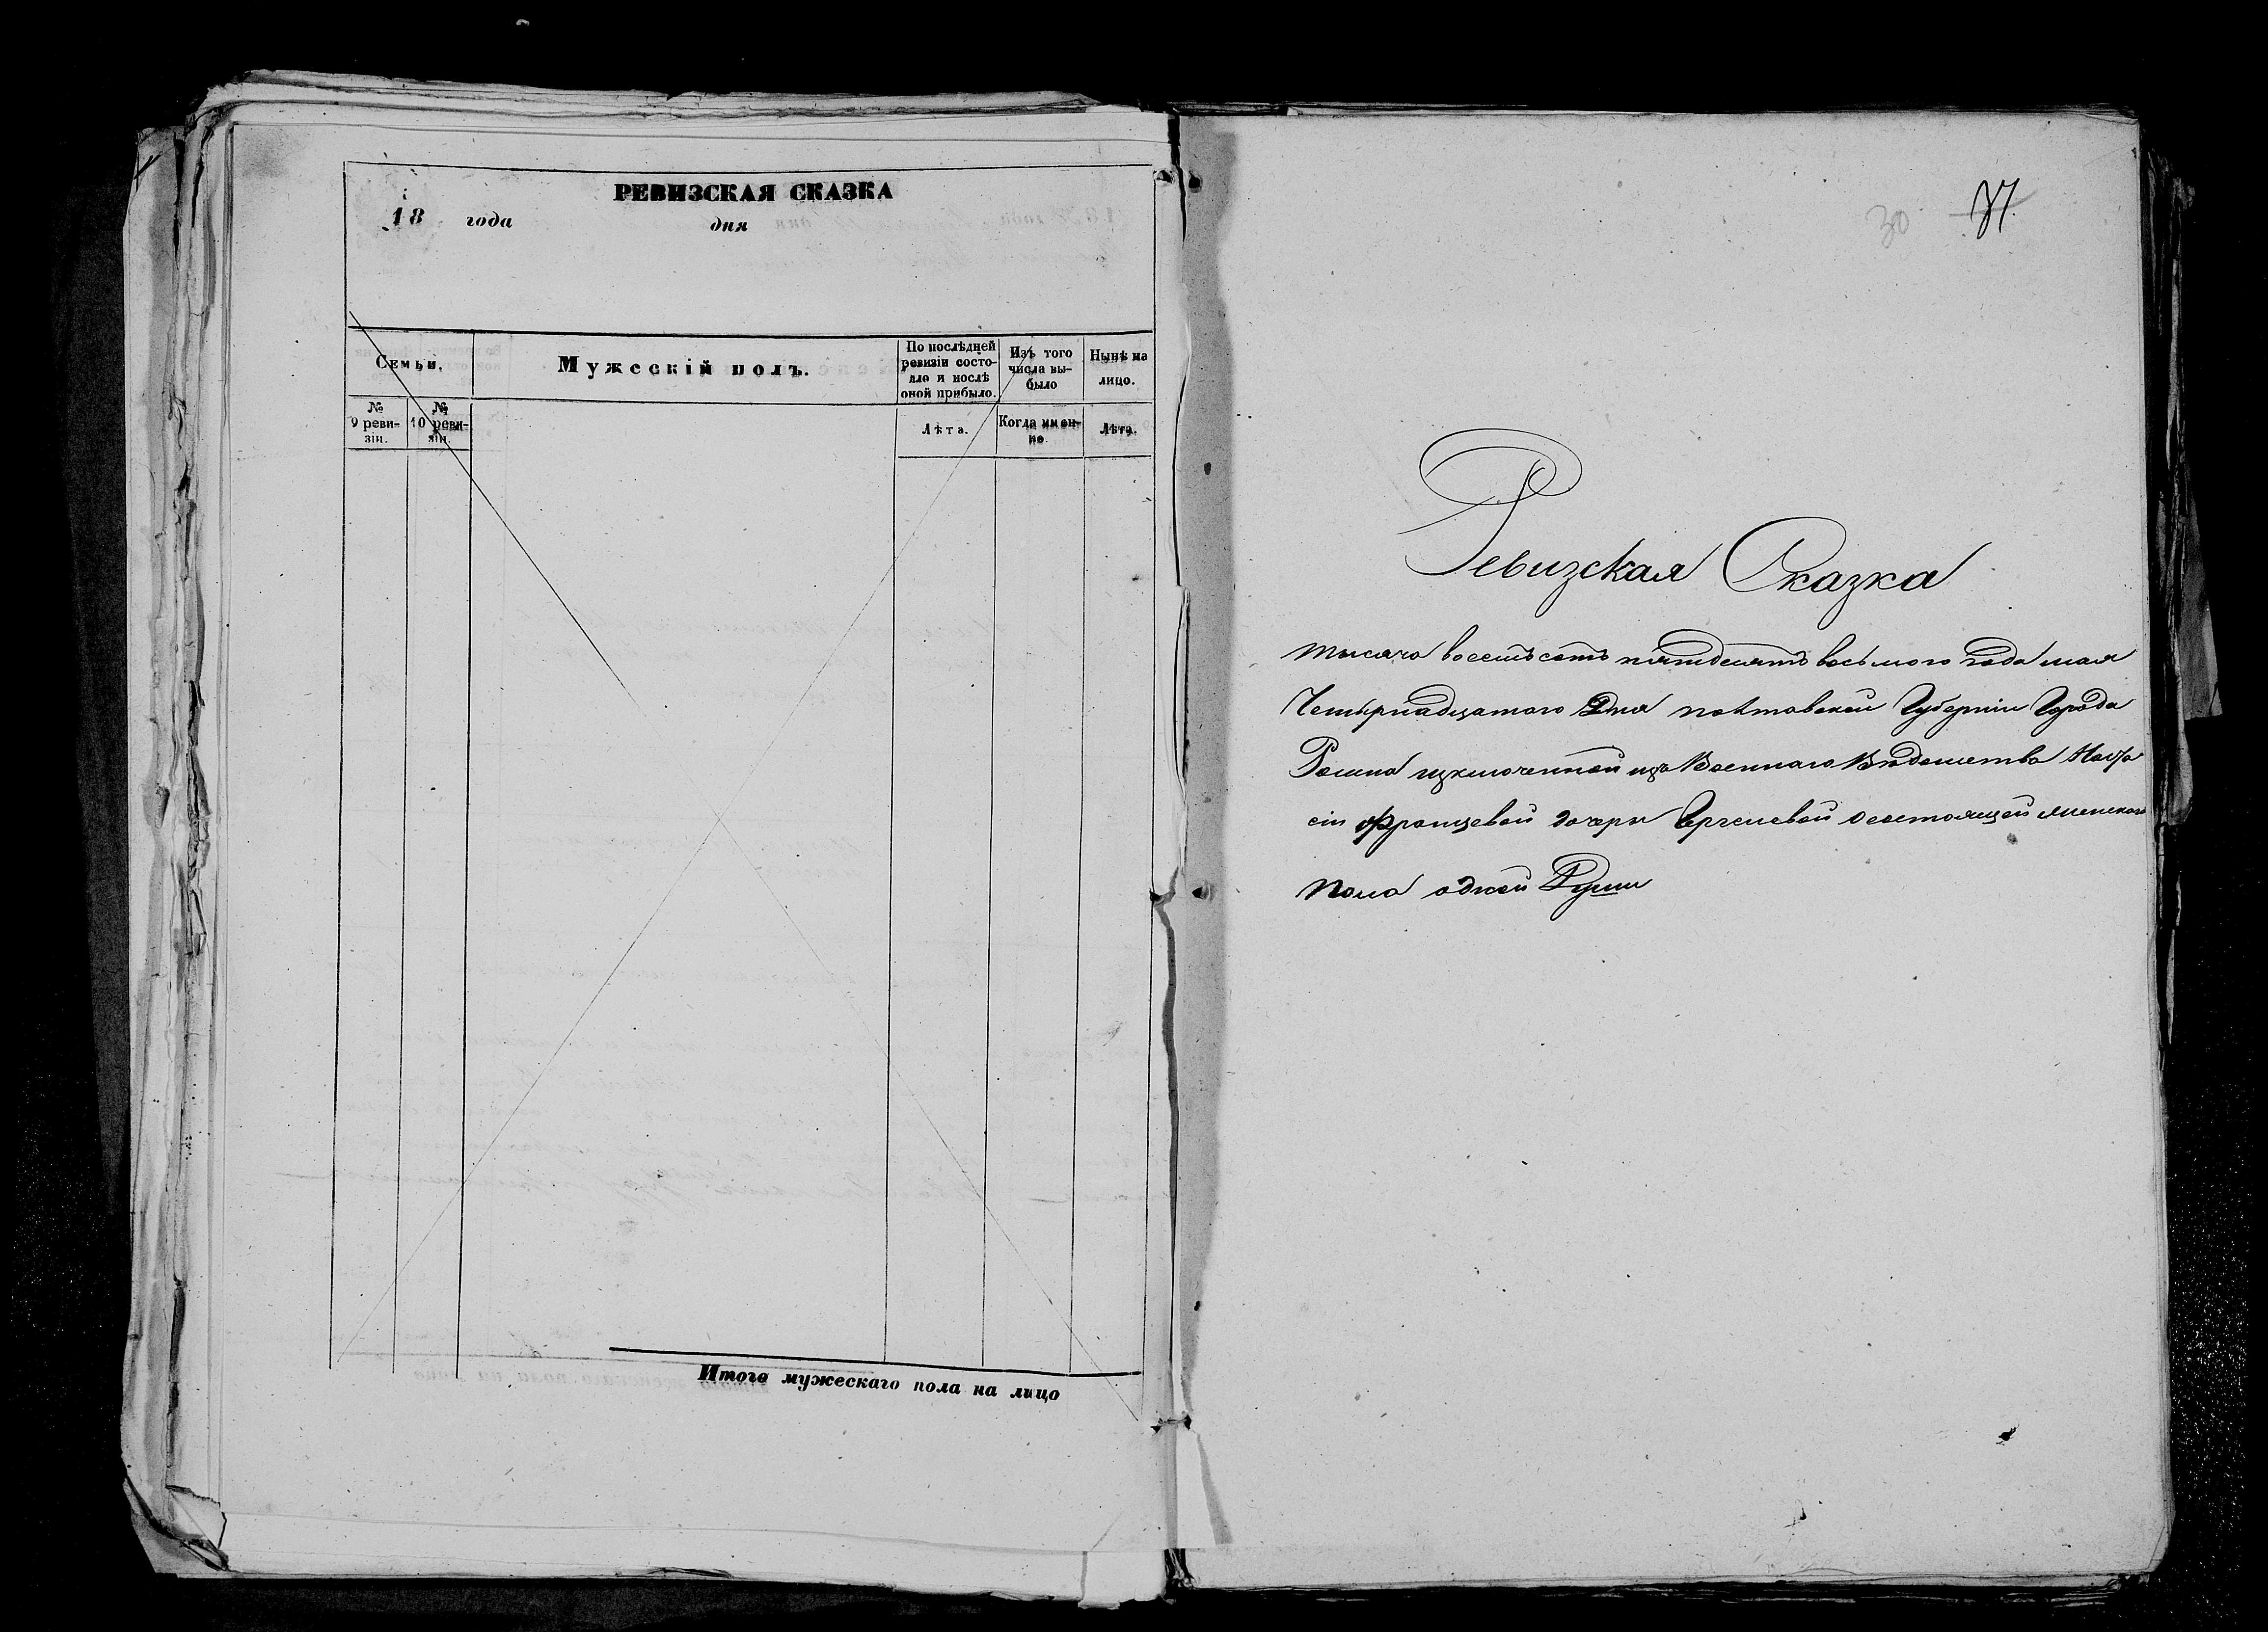 РЕВИЗСКАЯ СКАЗКА
18 года дня
Семьи.
Мужескій полъ.
По послѣдней ревизіи состояло и послѣ оной прибыло.
Изъ того числа выбыло
Нынѣ на лицо.
№ 9 ревизіи.
№ 10 ревизіи.
Лѣта.
Когда именно.
Лѣта.
Итого мужескаго пола на лицо
30
Ревизская Сказка
тысяча восемьсотъ пятдесятъ восьмого года мая
Четырнадцатого Дня полтавской Губерніи Города
Ромна изключенной изъ Военнаго Вѣдомства
Францевой дочери состоящей женскаго
пола одной Души